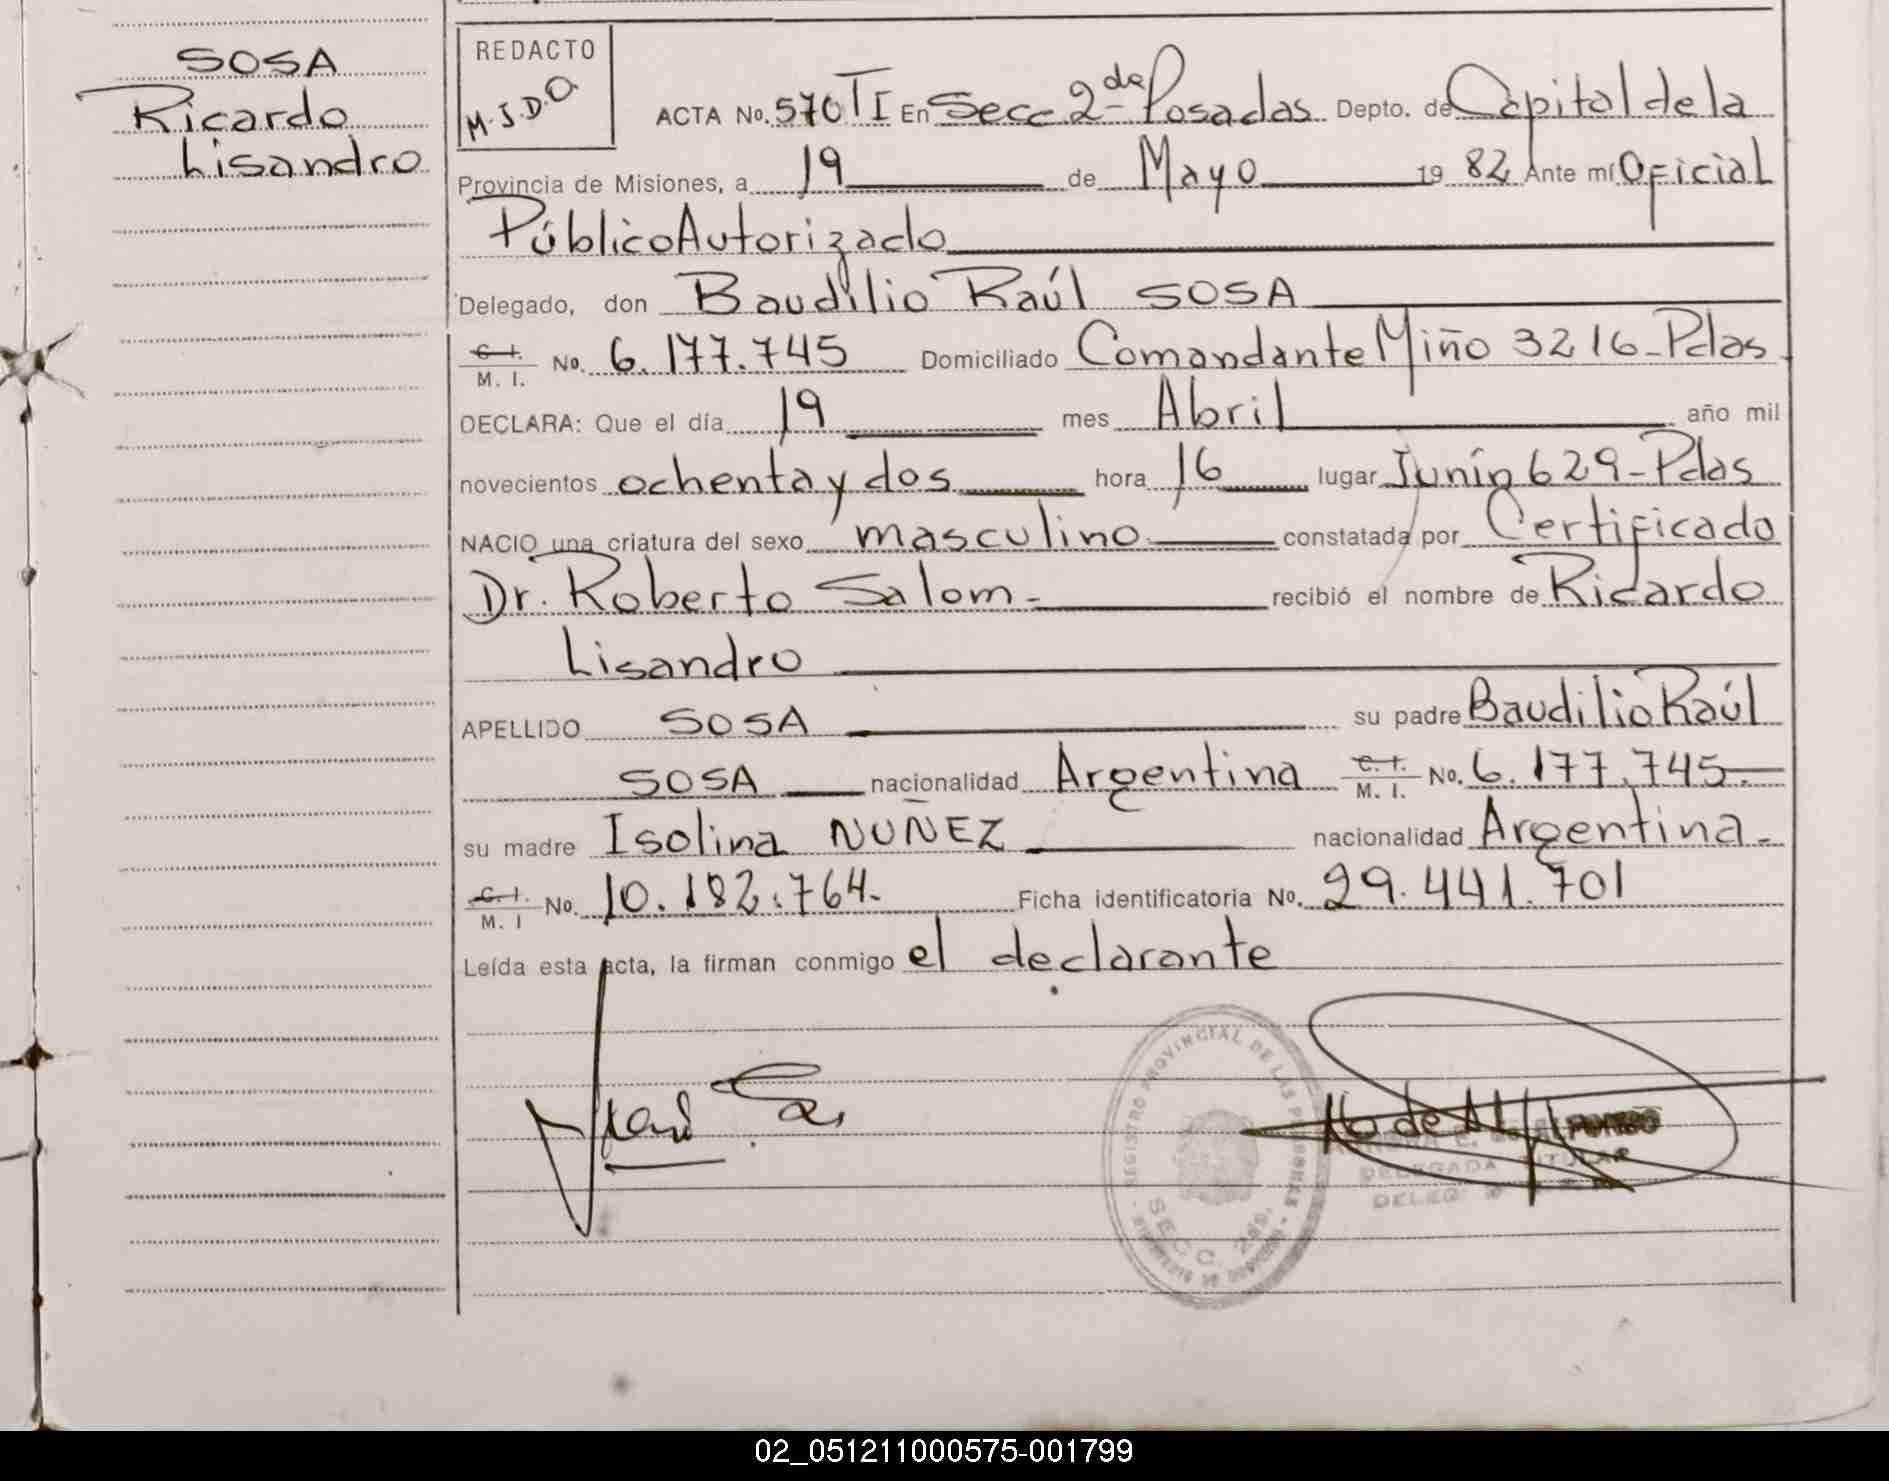 SOSA
Ricardo
Lisandro
REDACTO
M.J.D.O.
ACTA No. 570 TI En Secc 2da- Posadas Depto. de Capital de la
Provincia de Misiones, a 19 de Mayo 19 82 Ante mí Oficial
Público Autorizado
Delegado, don Baudilio Raúl SOSA
C. I. / M. I. No. 6.177.745 Domiciliado Comandante Miño 3216-Pdas
DECLARA: Que el día 19 mes Abril año mil
novecientos ochenta y dos hora 16 lugar Junín 629-Pdas
NACIO una criatura del sexo masculino constatada por Certificado
Dr. Roberto Salom- recibió el nombre de Ricardo
Lisandro
APELLIDO SOSA su padre Baudilio Raúl
SOSA nacionalidad Argentina C. I. / M. I. No. 6.177.745.-
su madre Isolina NUÑEZ nacionalidad Argentina.-
C. I. / M. I No. 10.182.764.- Ficha identificatoria No. 29.441.701
Leída esta acta, la firman conmigo el declarante
REGISTRO PROVINCIAL DE LAS PERSONAS
SECC. 2da.
DELEGADA TITULAR
02_051211000575-001799